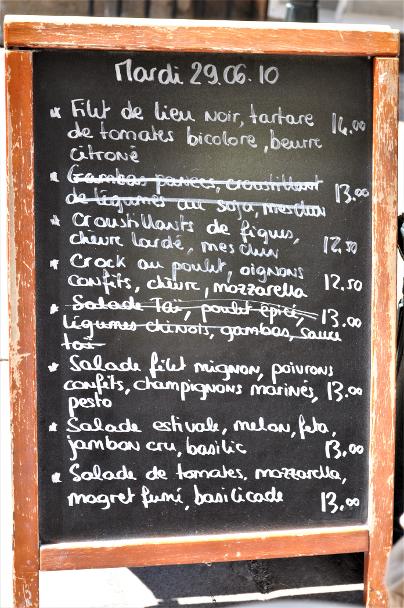 Mardi 29.06.10
* Filet de lieu noir, tartare
de tomates bicolore, beurre 14.00
citroné
* Gambas panées, croustillant
de légumes au soja, mesclun 13.00
* Croustillants de figues,
chèvre lardé, mesclun 12.50
* Crock au poulet, oignons
confits, chèvre, mozzarella 12.50
* Salade Taï, poulet épicé,
légumes chinois, gambas, sauce 13.00
taï
* Salade filet mignon, poivrons
confits, champignons marinés, 13.00
pesto
* Salade estivale, melon, feta,
jambon cru, basilic 13.00
* Salade de tomates, mozzarella,
magret fumé, basilicade 13.00